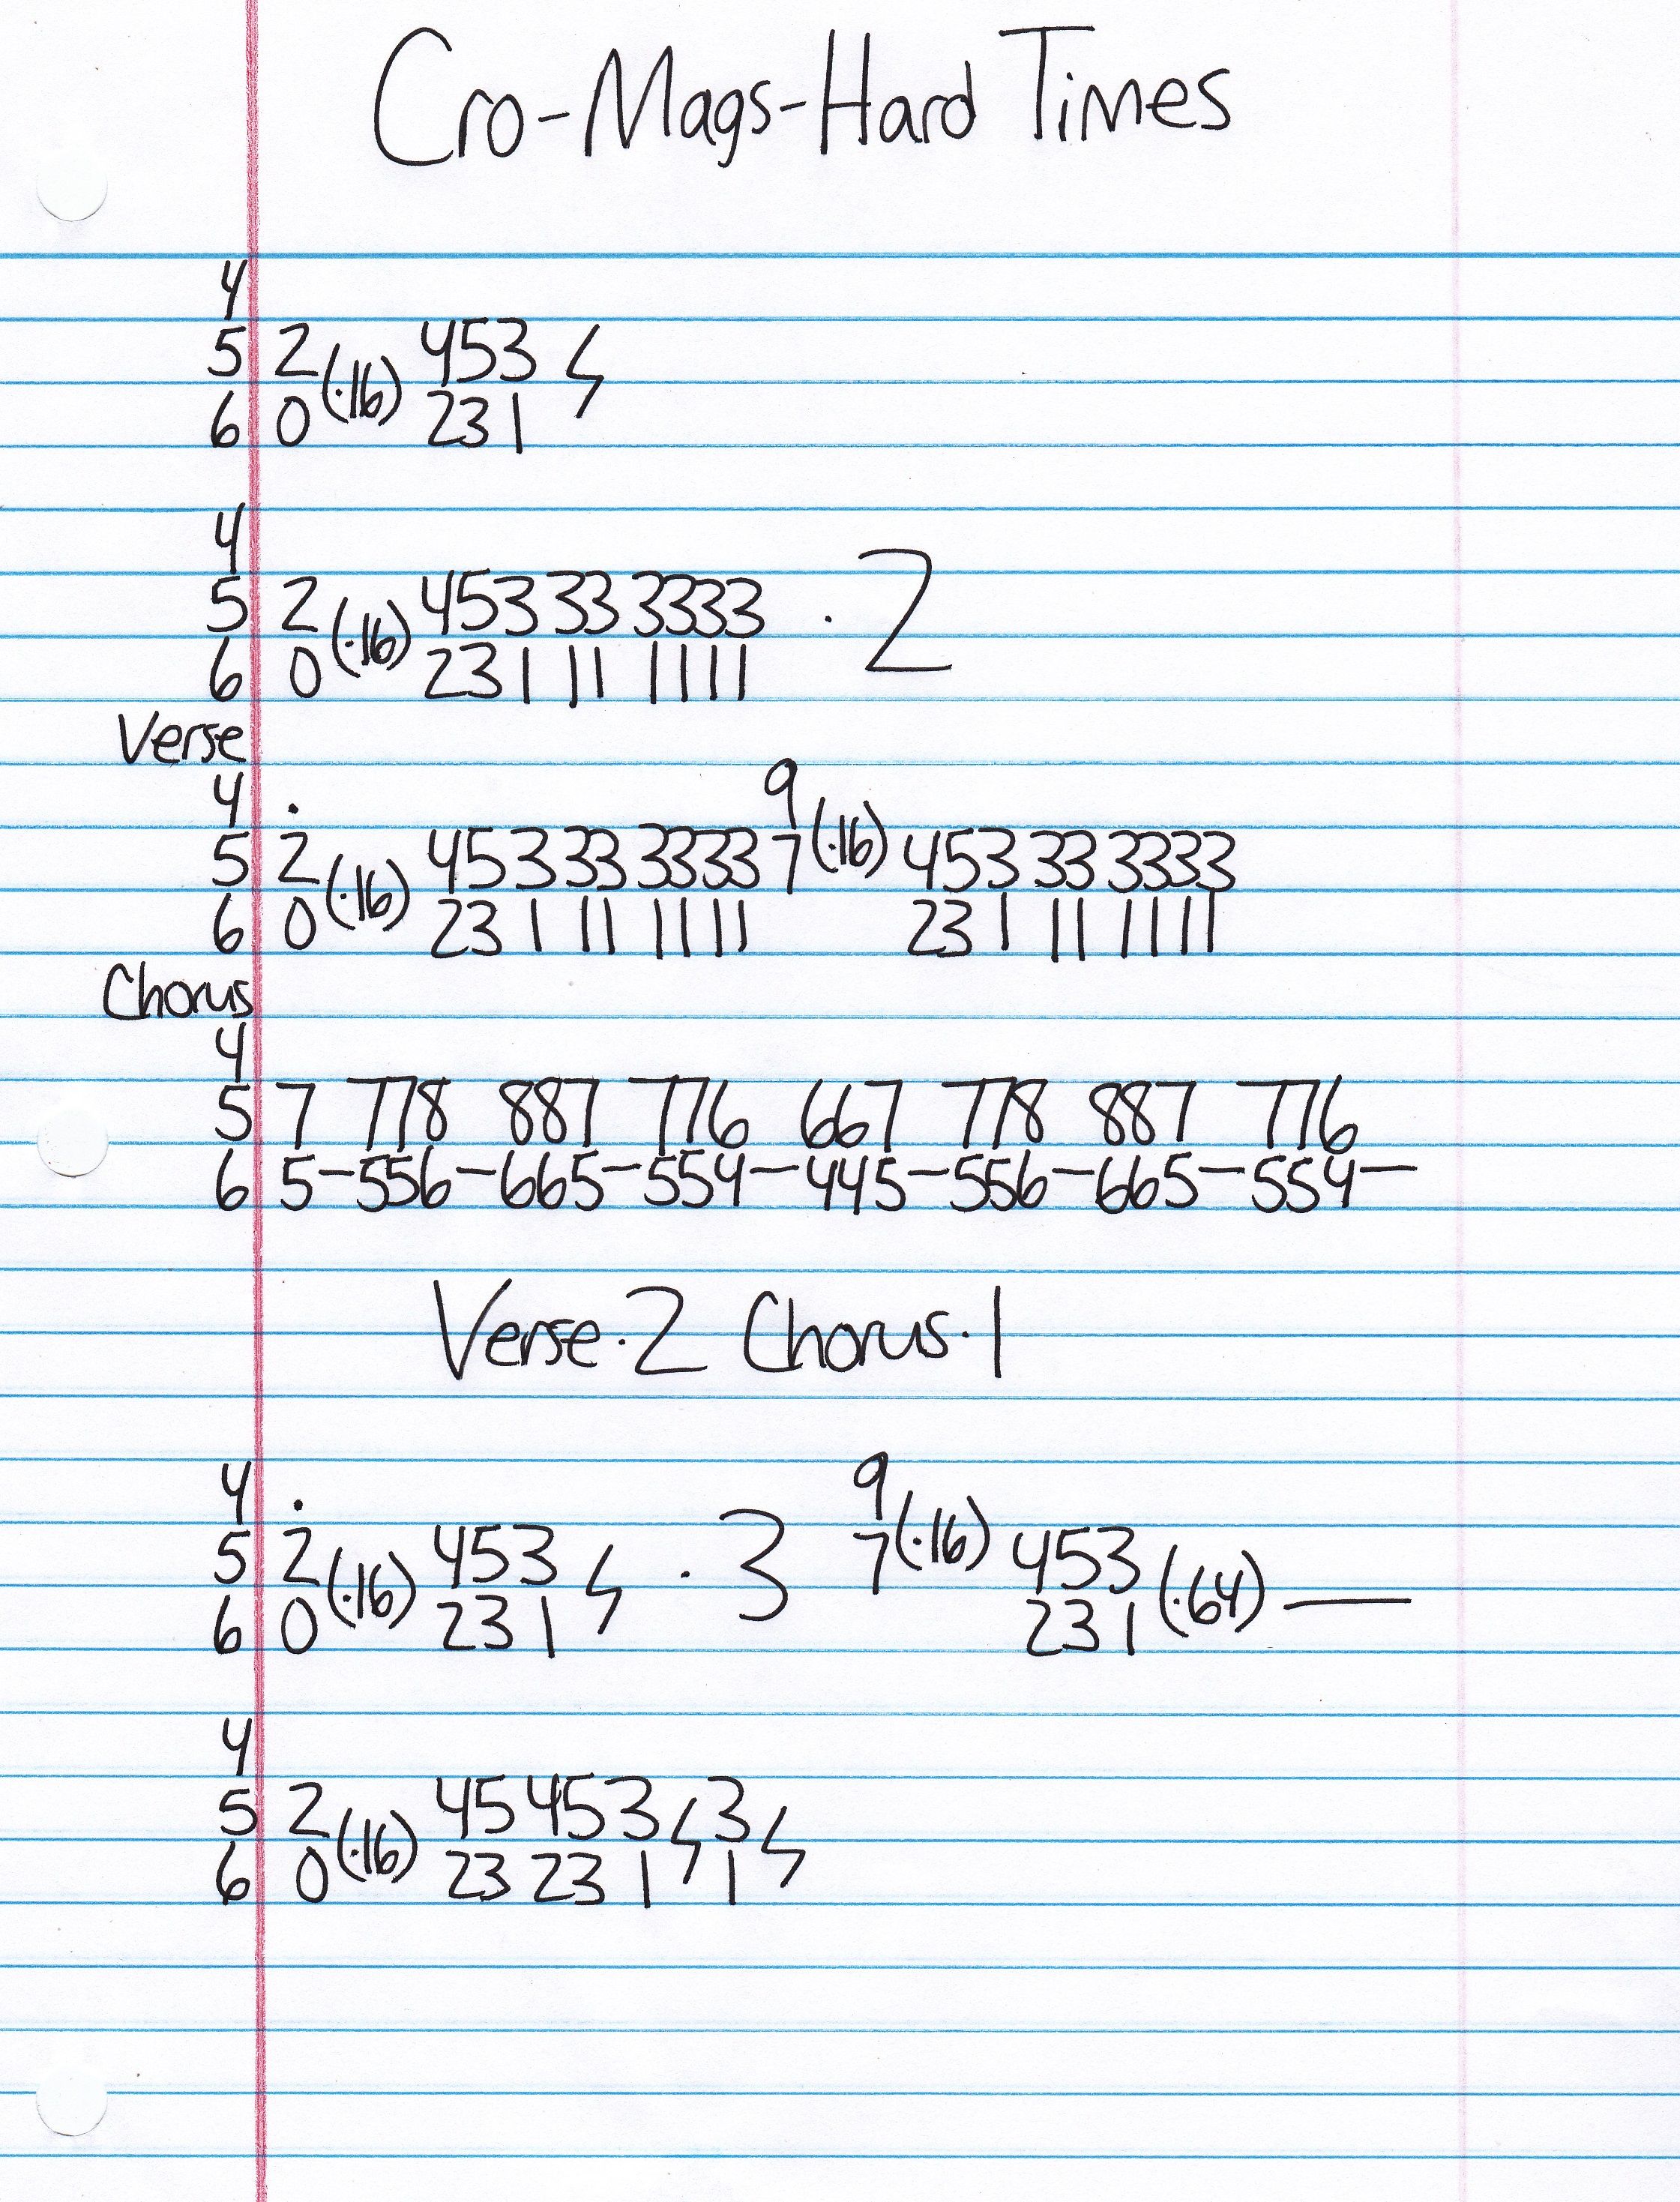 Cro-Mags-Hard Times
4
5 2 (·16) 453 ϟ
6 0 231
4
5 2 (·16) 453 33 3333 · 2
6 0 231 11 1111
Verse
4 · 9
5 2 (·16) 453 33 3333 7 (·16) 453 33 3333
6 0 231 11 1111 231 11 1111
Chorus
4
5 7 778 887 776 667 778 887 776
6 5-556-665-554-445-556-665-554-
Verse·2 Chorus·1
4 · 9
5 2 (·16) 453 ϟ · 3 7 (·16) 453 (·64) —
6 0 231 231
4
5 2 (·16) 45 453 ϟ 3 ϟ
6 0 23 231 1